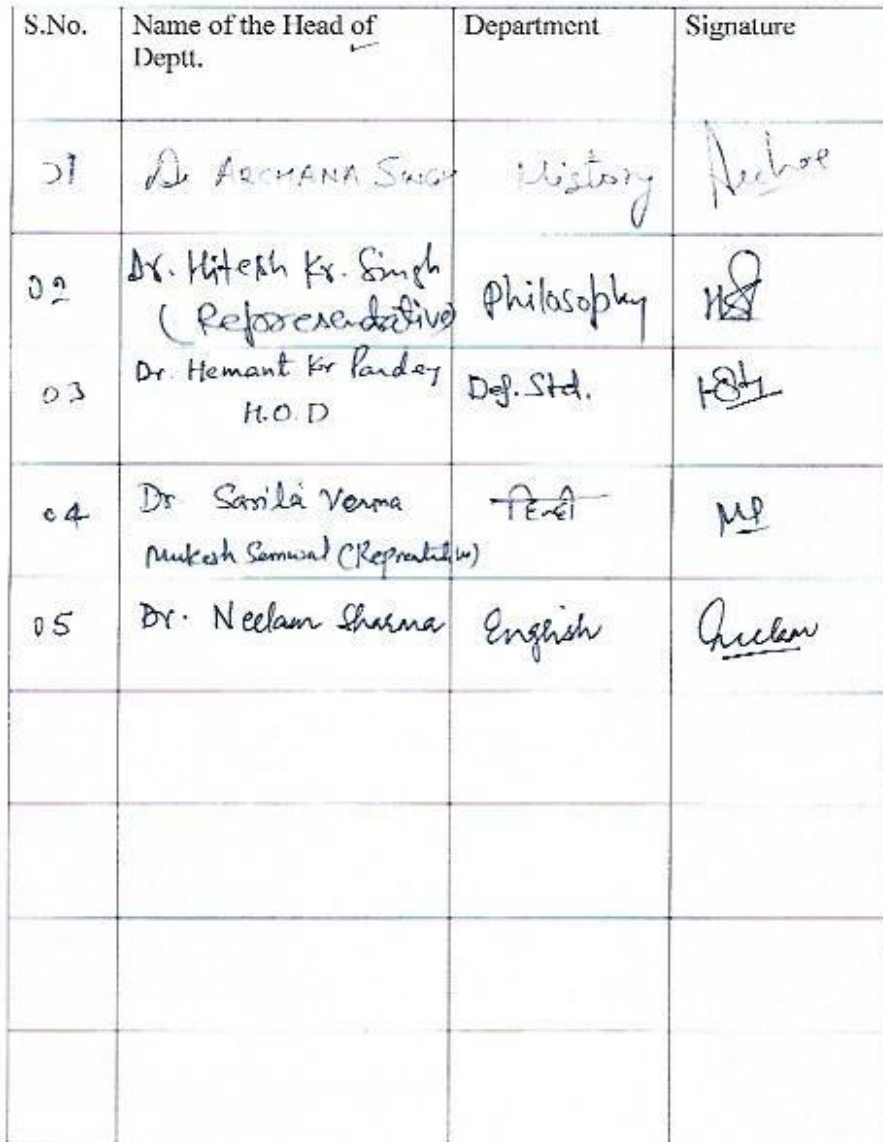 S.No. Name of the Head of Deptt. Department Signature
01 Dr ARCHANA SINGH History
02 Dr. Hitesh Kr. Singh Philosophy
(Representative)
03 Dr. Hemant Kr Pandey Def. Std.
H.O.D
04 Dr Verma हिन्दी
Mukesh Semwal (Reprentative)
05 Dr. Neelam Sharma English Neelam